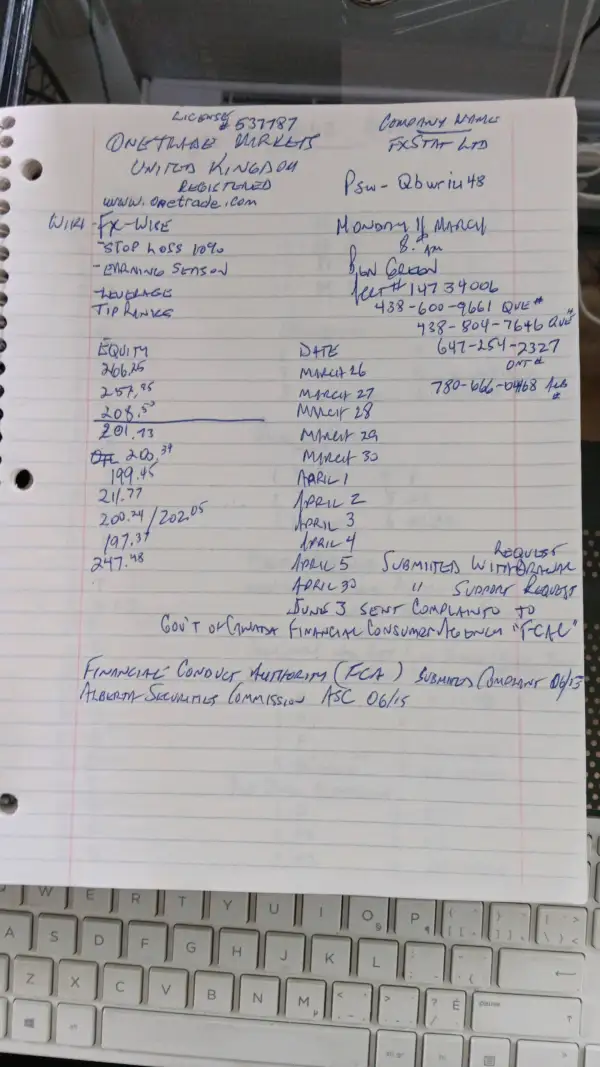 LICENSE # 537787
COMPANY NAME
ONETRADE MARKETS
FXSTAT LTD
UNITED KINGDOM
REGISTERED
Psw- Qbwriu48
www.onetrade.com
WIRI - FX-WISE
MONDAY 11 MARCH
-STOP LOSS 10%
8. AM
-EARNING SEASON
BEN GREEN
-LEVERAGE
ACCT # 14734006
TIP RANKS
438-600-9661 QUE #
438-804-7646 QUE #
EQUITY
DATE
647-254-2327
ONT #
206.25
MARCH 26
257.95
MARCH 27
780-666-0468 #
208.50
MARCH 28
201.73
MARCH 29
200.39
MARCH 30
199.45
APRIL 1
211.77
APRIL 2
200.24/202.05
APRIL 3
197.37
APRIL 4
REQUEST
247.48
APRIL 5 SUBMITTED WITHDRAWAL
APRIL 30 " SUPPORT REQUEST
JUNE 3 SENT COMPLAINT TO
GOV'T OF CANADA FINANCIAL CONSUMER AGENCY "FCAC"
FINANCIAL CONDUCT AUTHORITY (FCA) SUBMITTED COMPLAINT 06/15
ALBERTA SECURITIES COMMISSION ASC 06/15
W E R T Y U I O P
A S D F G H J K L
Z X C V B N M